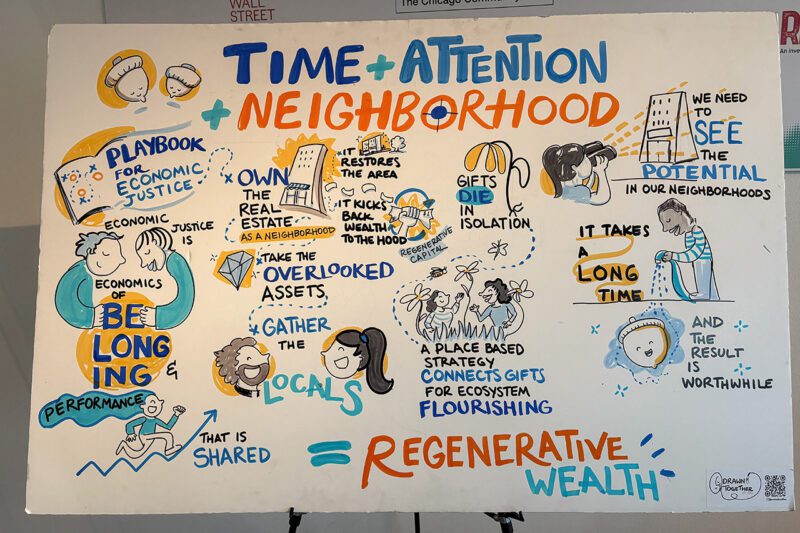 WALL
STREET
The Chicago Commun
TIME + ATTENTION
+ NEIGHBORHOOD
PLAYBOOK
FOR
ECONOMIC
JUSTICE
ECONOMIC
JUSTICE IS
ECONOMICS
OF
BE
LONG
ING &
PERFORMANCE
THAT IS
SHARED
OWN
THE
REAL
ESTATE
AS A NEIGHBORHOOD
IT
RESTORES
THE AREA
IT KICKS
BACK
WEALTH
TO THE HOOD
REGENERATIVE
CAPITAL
TAKE THE
OVERLOOKED
ASSETS
GATHER
THE
LOCALS
GIFTS
DIE
IN
ISOLATION
A PLACE BASED
STRATEGY
CONNECTS GIFTS
FOR ECOSYSTEM
FLOURISHING
WE NEED
TO
SEE
THE
POTENTIAL
IN OUR NEIGHBORHOODS
IT TAKES
A
LONG
TIME
AND
THE
RESULT
IS
WORTHWHILE
= REGENERATIVE
WEALTH
DRAWN
TOGETHER